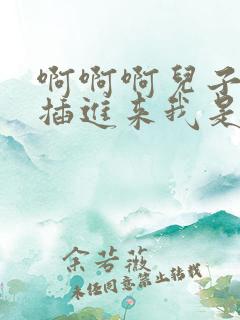 啊啊啊兒子
插進来我是
余若薇
未任同意禁止转载